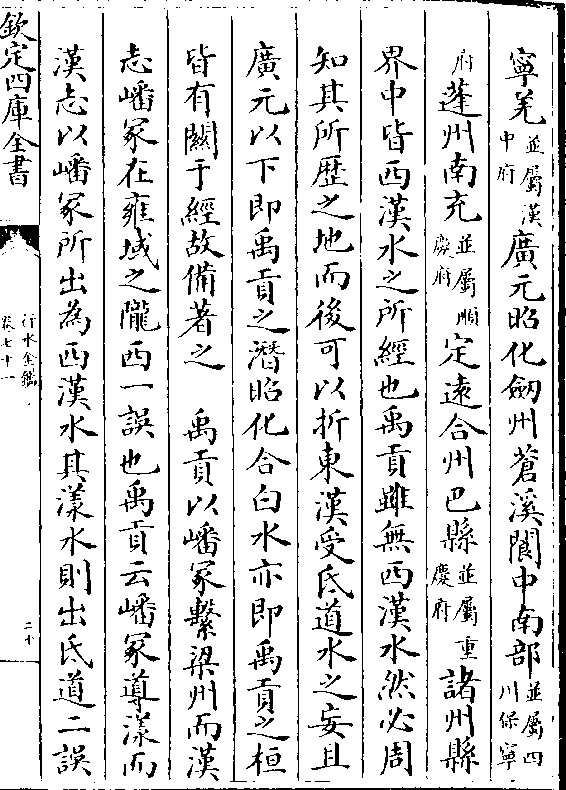 寧羌並屬漢中府廣元昭化劒州蒼溪閬中南部並屬四川保寧
府蓬州南充並屬順慶府定遠合州巴縣並屬重慶府諸州縣
界中皆西漢水之所經也禹貢雖無西漢水然必周
知其所歴之地而後可以折東漢受氐道水之妄且
廣元以下即禹貢之潛昭化合白水亦即禹貢之桓
皆有關于經故備著之　禹貢以嶓冢繫梁州而漢
志嶓冢在雍域之隴西一誤也禹貢云嶓冢導漾而
漢志以嶓冢所出為西漢水其漾水則出氐道二誤
欽定四庫全書
行水金鑑
卷七十一
二十